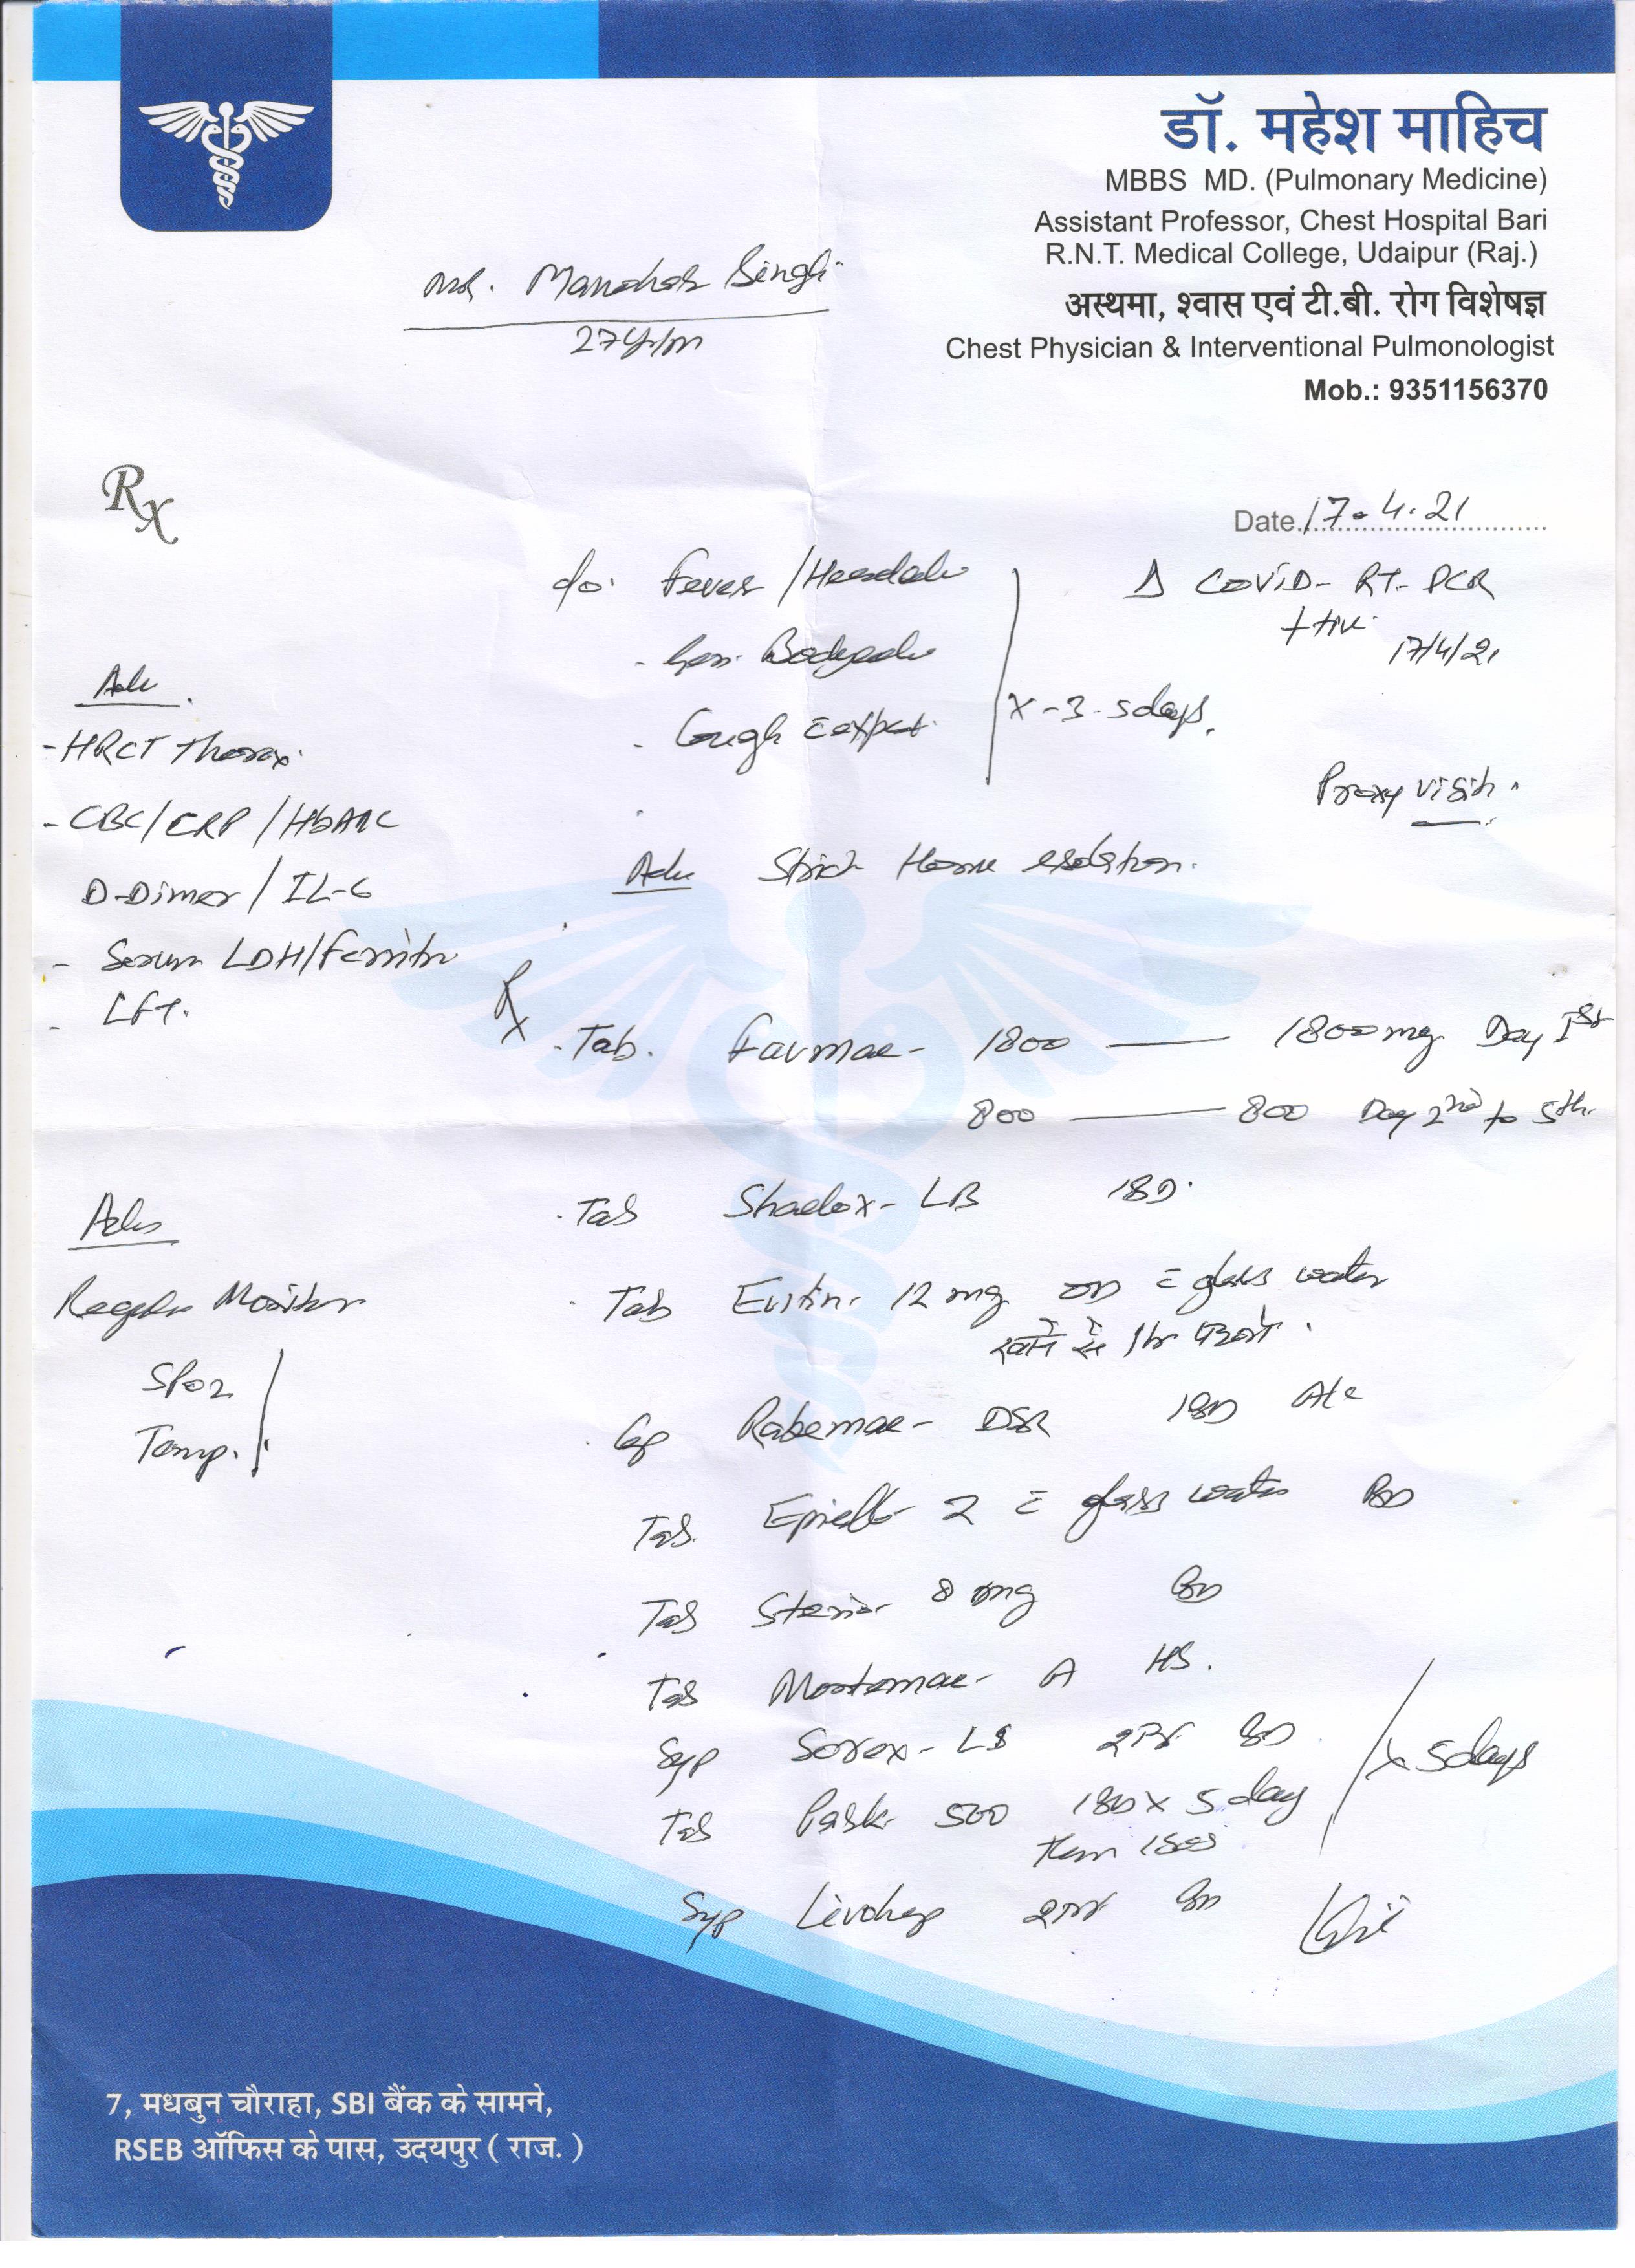 डॉ. महेश माहिच
MBBS MD. (Pulmonary Medicine)
Assistant Professor, Chest Hospital Bari
R.N.T. Medical College, Udaipur (Raj.)
अस्थमा, श्वास एवं टी.बी. रोग विशेषज्ञ
Chest Physician & Interventional Pulmonologist
Mob.: 9351156370
Singh
27y/m
Rx
Date 17.4.21
c/o Fever / Headache
Δ COVID- RT-PCR
+tive
17/4/21
- Gen. Bodyache
- Cough c expect.
x-3-5days.
Proxy visit.
Adv
- HRCT Thorax
- CBC/CRP/HbA1C
D-Dimer/IL-6
- Serum LDH/Ferritin
- LFT.
Adv Strict Home isolation.
Rx
Tab. Favmac- 1800 — 1800mg Day Ist
800 — 800 Day 2nd to 5th.
Tab LB 1BD.
Adv
Regular Monitor
SPO2
Temp.
Tab 12 mg OD c glass water
1hr
Cap Rabemac- DSR 1BD
Tab. 2 c glass water BD
Tab 8 mg BD
Tab Montemac- A HS.
Syp Sorex- LS BD
x 5days
Tab 500 1BD x 5 day
then
Syp BD
7, मधबुन चौराहा, SBI बैंक के सामने,
RSEB ऑफिस के पास, उदयपुर ( राज. )